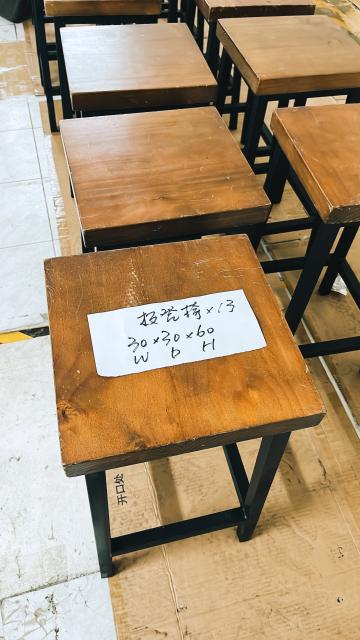 板凳椅×13
30×30×60
W D H
开口处